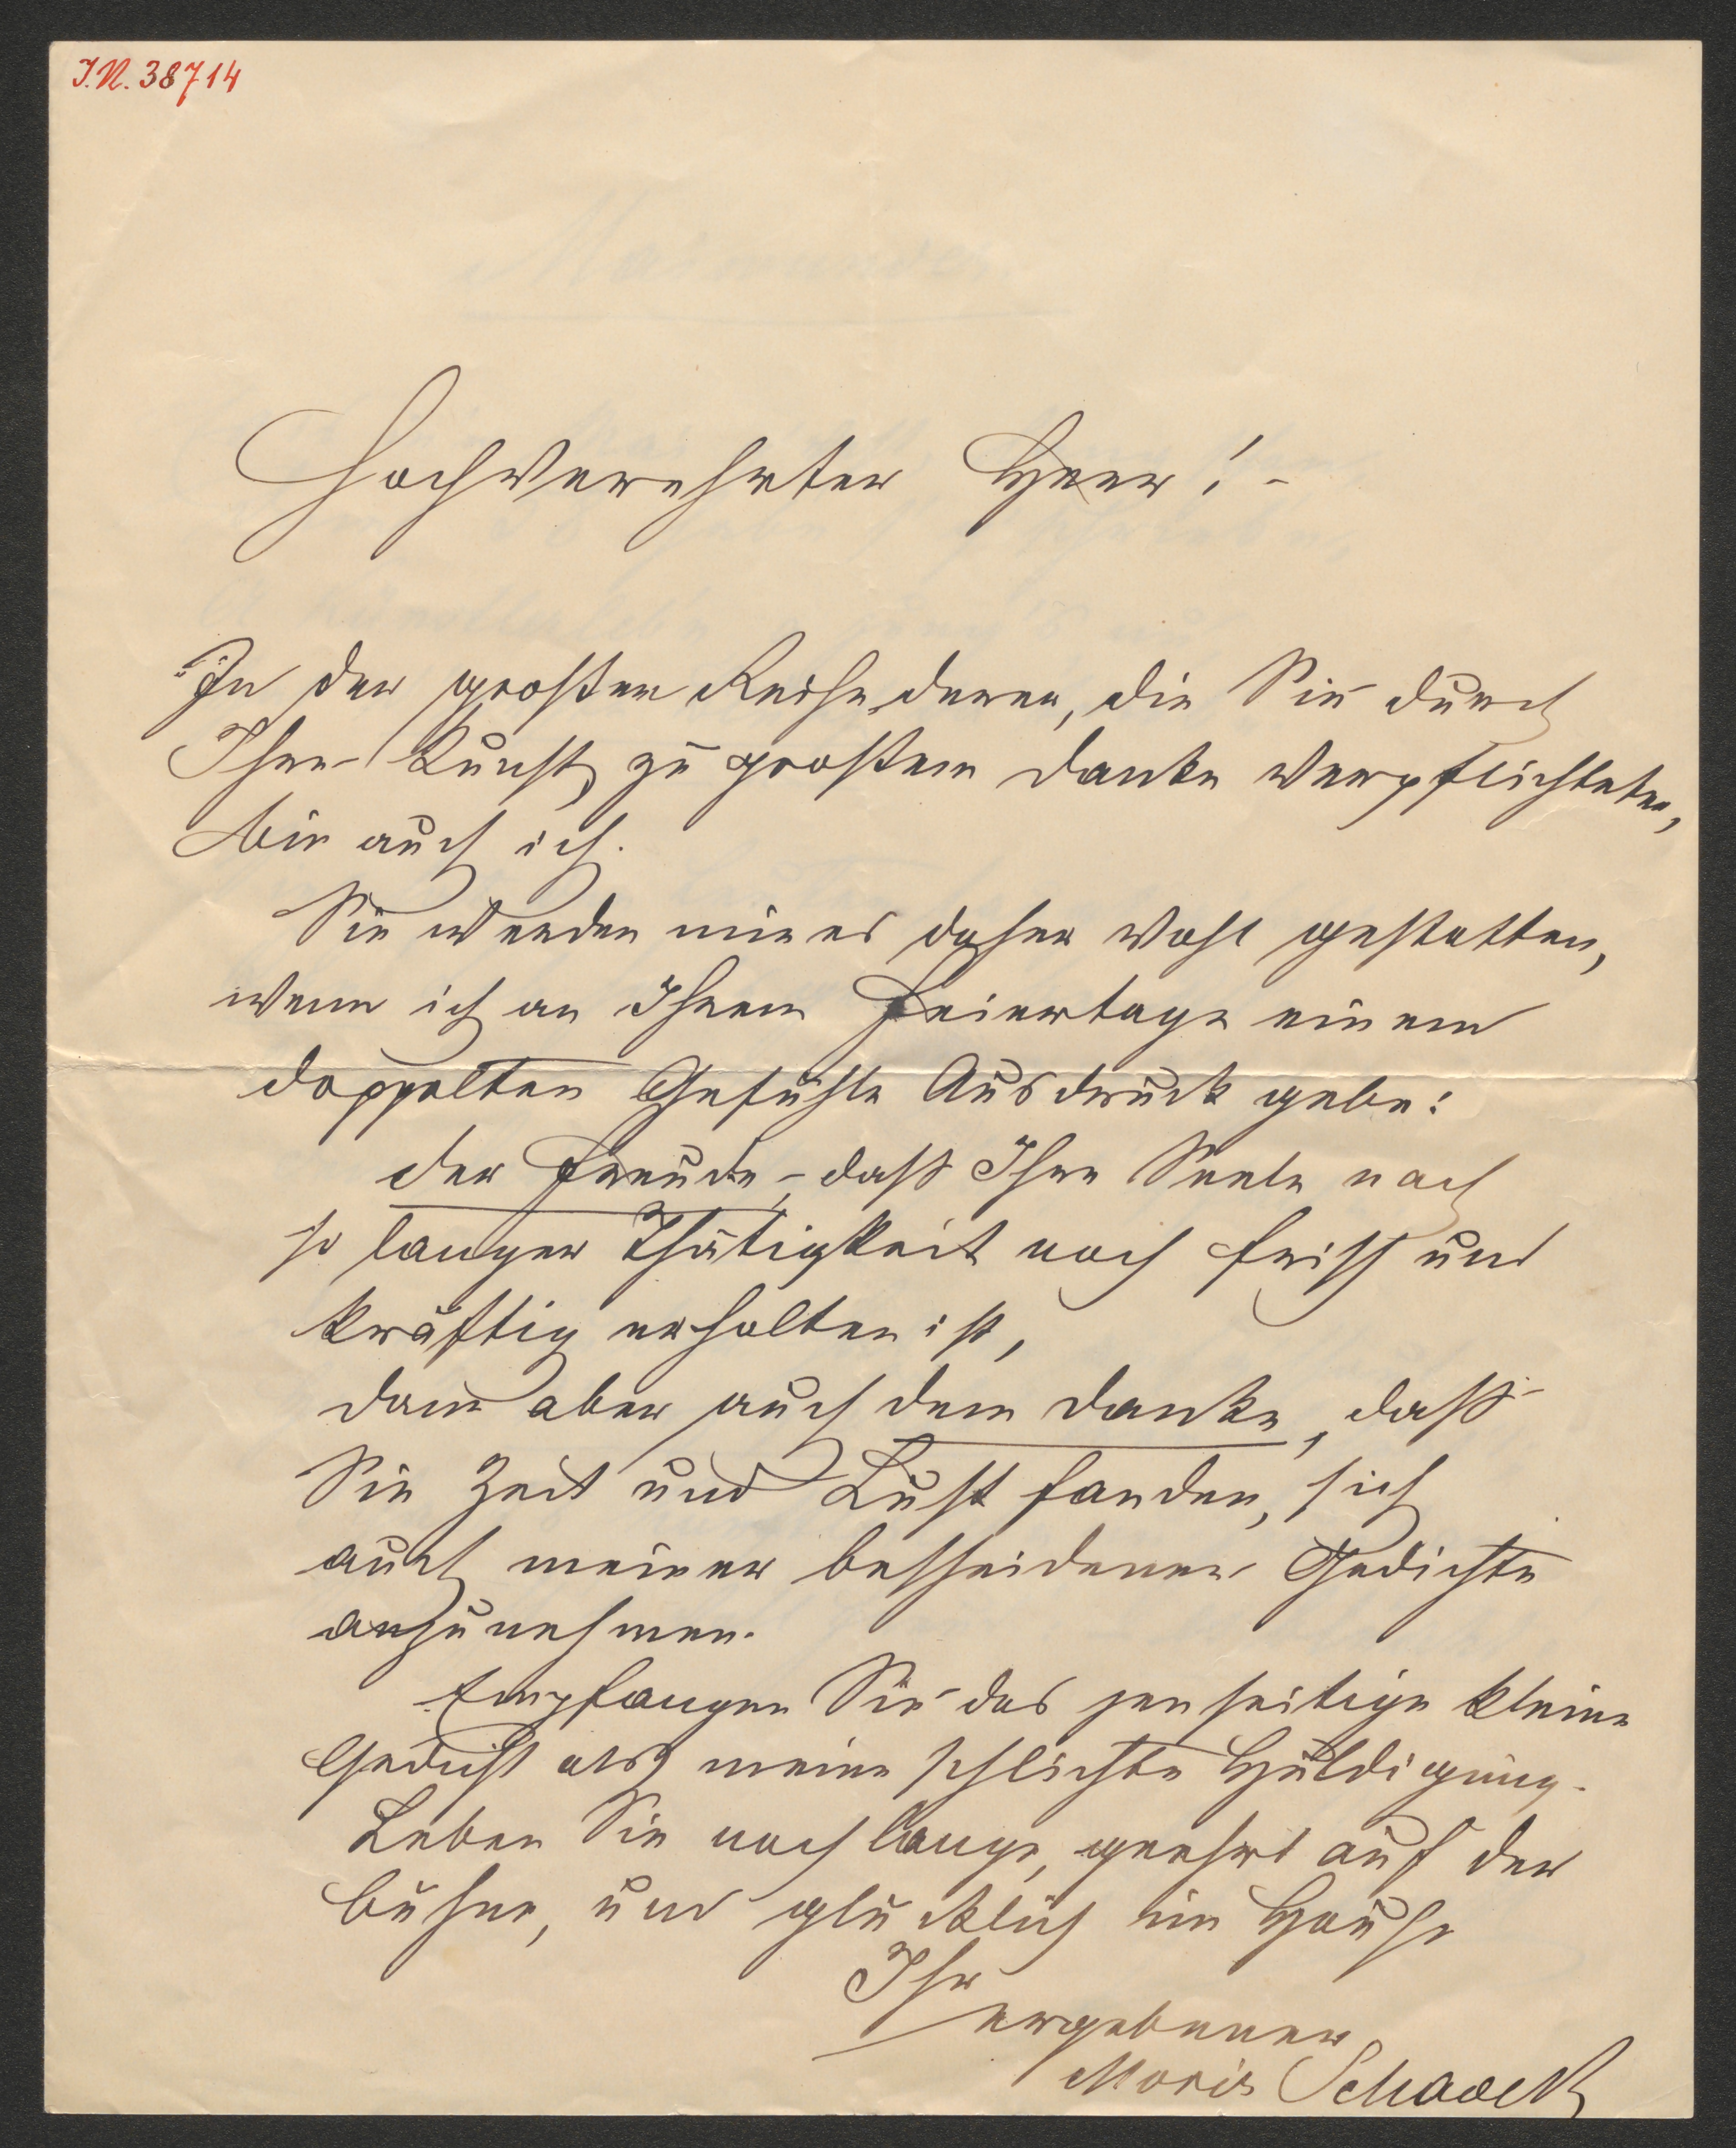 I.N. 38714
Hochverehrter Herr! -
In der großen Reihe deren, die Sie durch
Ihre Kunst zu großem Danke verpflichteten,
bin auch ich.
Sie werden mir es daher wohl gestatten,
wenn ich an Ihrem Feiertage einem
doppelten Gefühle Ausdruck gebe:
der Freude, daß Ihre Seele nach
so langer Thätigkeit noch frisch und
kräftig erhalten ist,
dann aber auch dem Danke, daß
Sie Zeit und Lust fanden, sich
auch meiner bescheidenen Gedichte
anzunehmen.
Empfangen Sie das jenseitige kleine
Gedicht als meine schlichte Huldigung.
Leben Sie noch lange, geehrt auf der
Bühne, und glücklich im Hause
Ihr
ergebener
Moriz Schadek